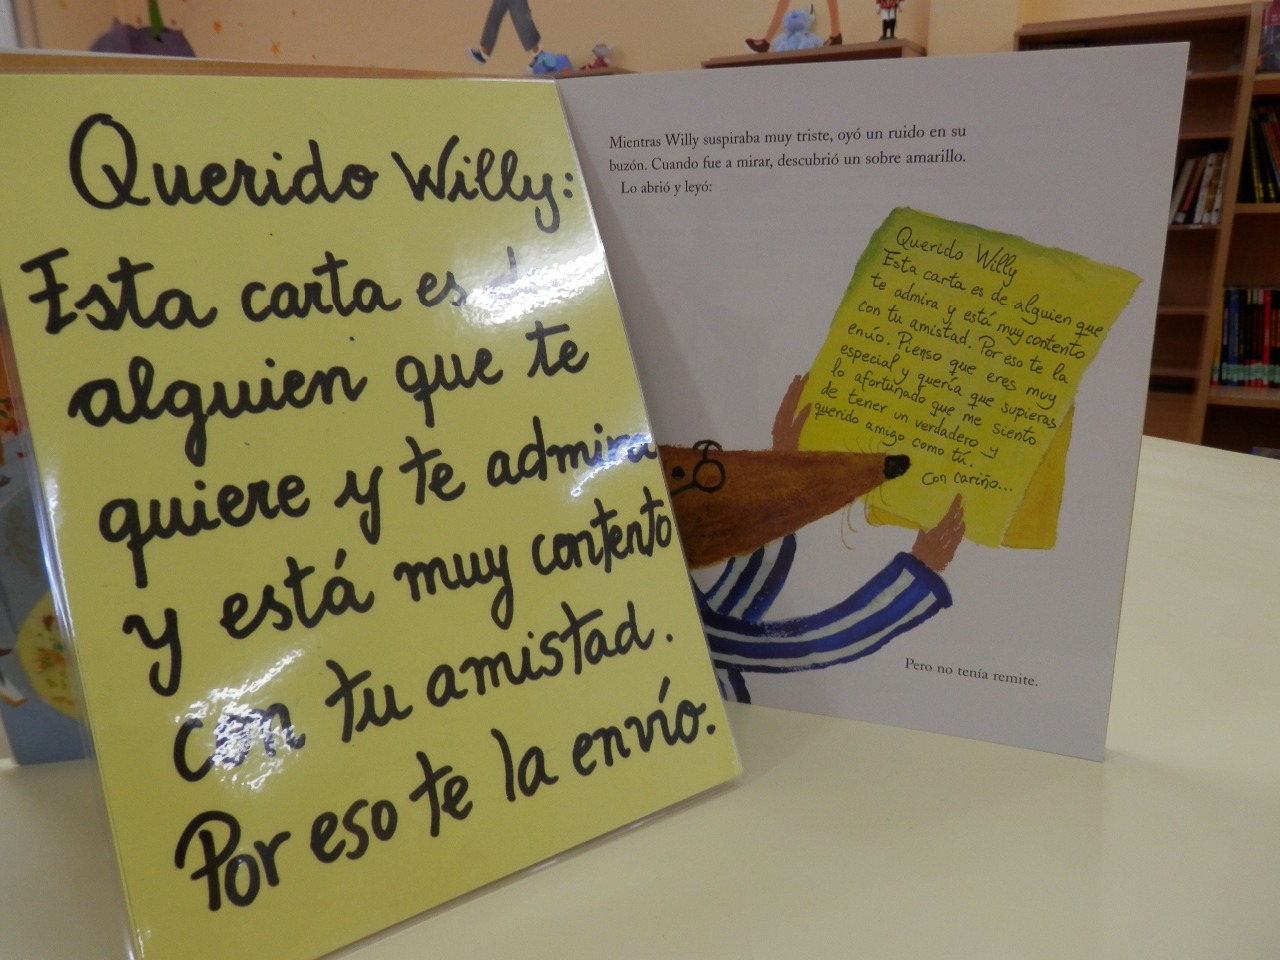 Querido Willy:
Esta carta es de
alguien que te
quiere y te admira
y está muy contento
con tu amistad.
Por eso te la envío.
Mientras Willy suspiraba muy triste, oyó un ruido en su
buzón. Cuando fue a mirar, descubrió un sobre amarillo.
Lo abrió y leyó:
Querido Willy
Esta carta es de alguien que
te admira y está muy contento
con tu amistad. Por eso te la
envío. Pienso que eres muy
especial y quería que supieras
lo afortunado que me siento
de tener un verdadero y
querido amigo como tú.
Con cariño...
Pero no tenía remite.